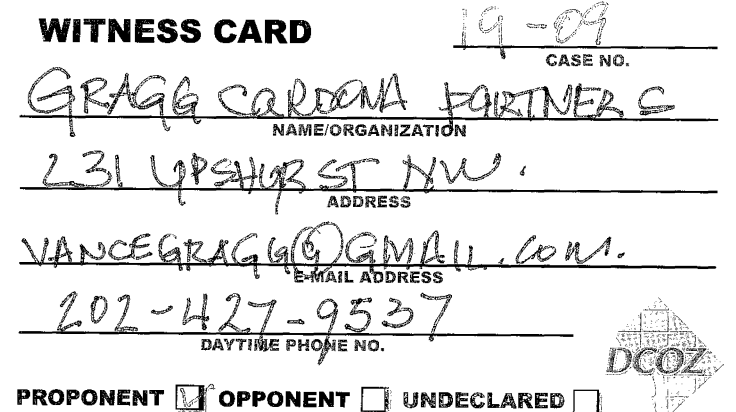 WITNESS CARD
19-09
CASE NO.
GRAGG CARDONA PARTNERS
NAME/ORGANIZATION
231 UPSHUR ST NW.
ADDRESS
VANCEGRAGG@GMAIL.COM.
E-MAIL ADDRESS
202-427-9537
DAYTIME PHONE NO.
DCOZ
PROPONENT ☑ OPPONENT ☐ UNDECLARED ☐